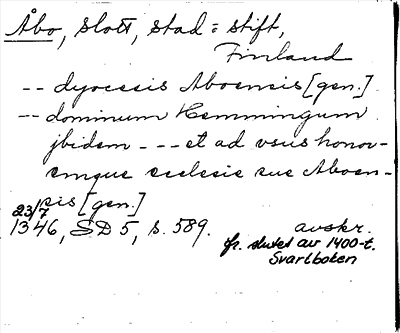 Åbo, slott, stad = stift,
Finland
-- dyocesis Aboensis [gen.]
-- dominum Hemmingum
jbidem --- et ad vsus honor-
emque ecclesie sue Aboen-
sis [gen.]
23/7
1346, SD 5, s. 589. avskr.
fr. slutet av 1400-t.
Svartboken